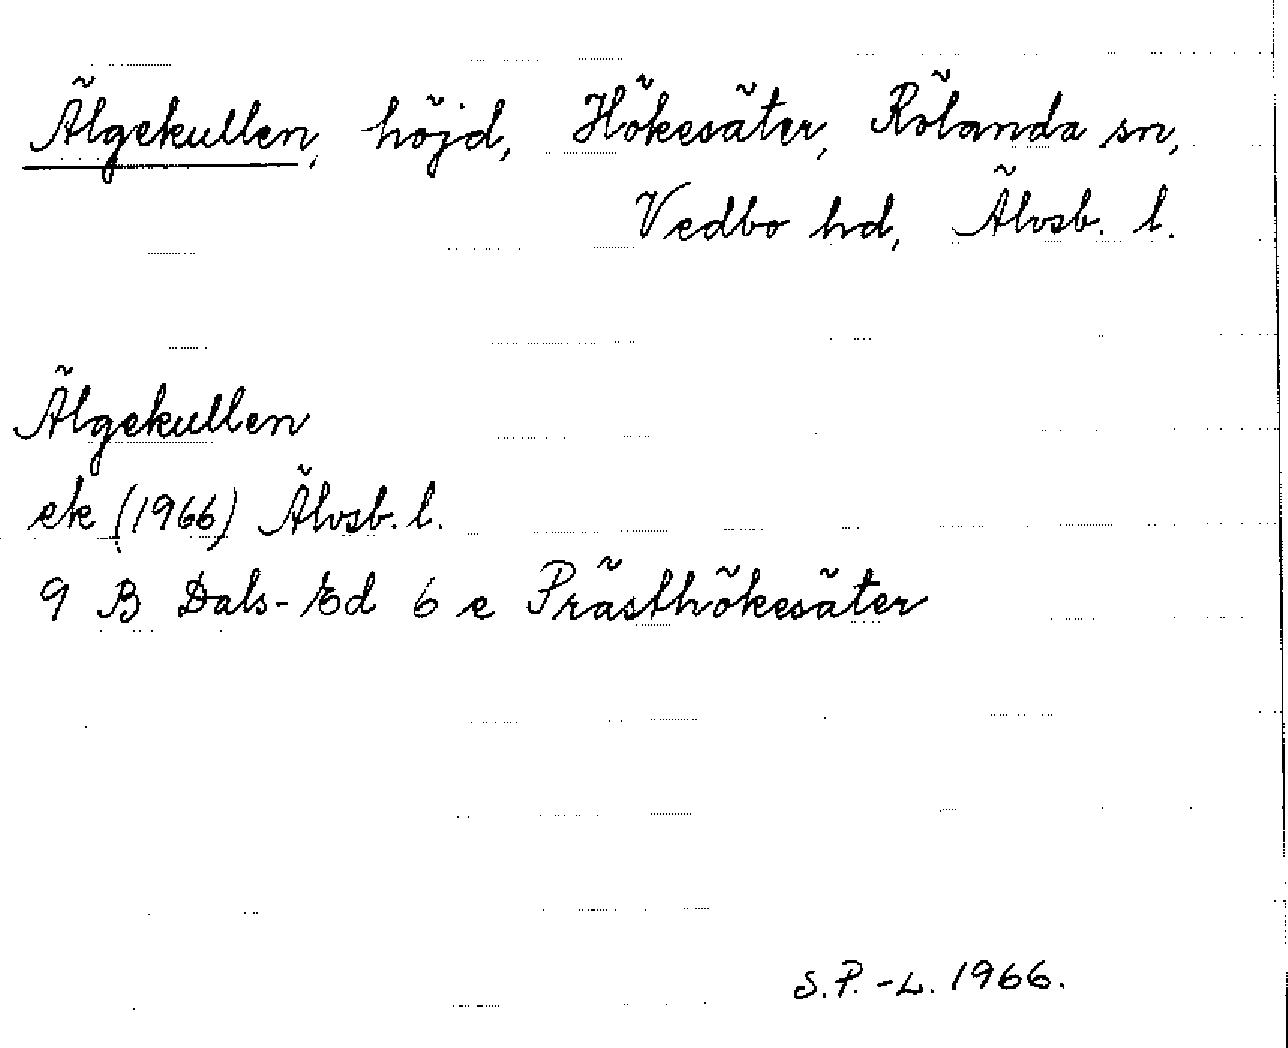 Älgekullen, höjd, Hökesäter, Rölanda sn,
Vedbo hd, Älvsb. l.
Älgekullen
ek (1966) Älvsb. l.
9 B Dals-Ed 6 e Prästhökesäter
S.P.-L. 1966.